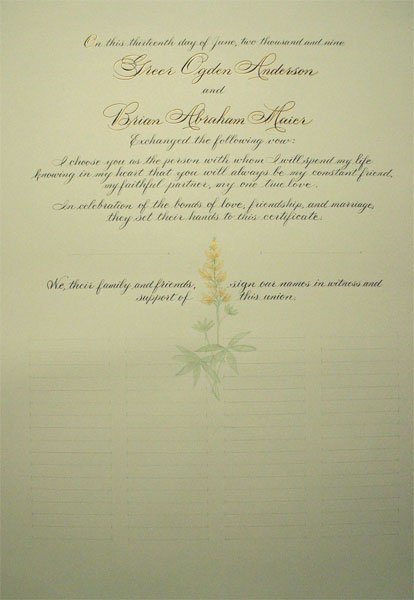 On this thirteenth day of June, two thousand and nine
Greer Ogden Anderson
and
Brian Abraham Maier
Exchanged the following vow:
I choose you as the person with whom I will spend my life
knowing in my heart that you will always be my constant friend,
my faithful partner, my one true love.
In celebration of the bonds of love, friendship, and marriage,
they set their hands to this certificate.
We, their family and friends, sign our names in witness and
support of this union.